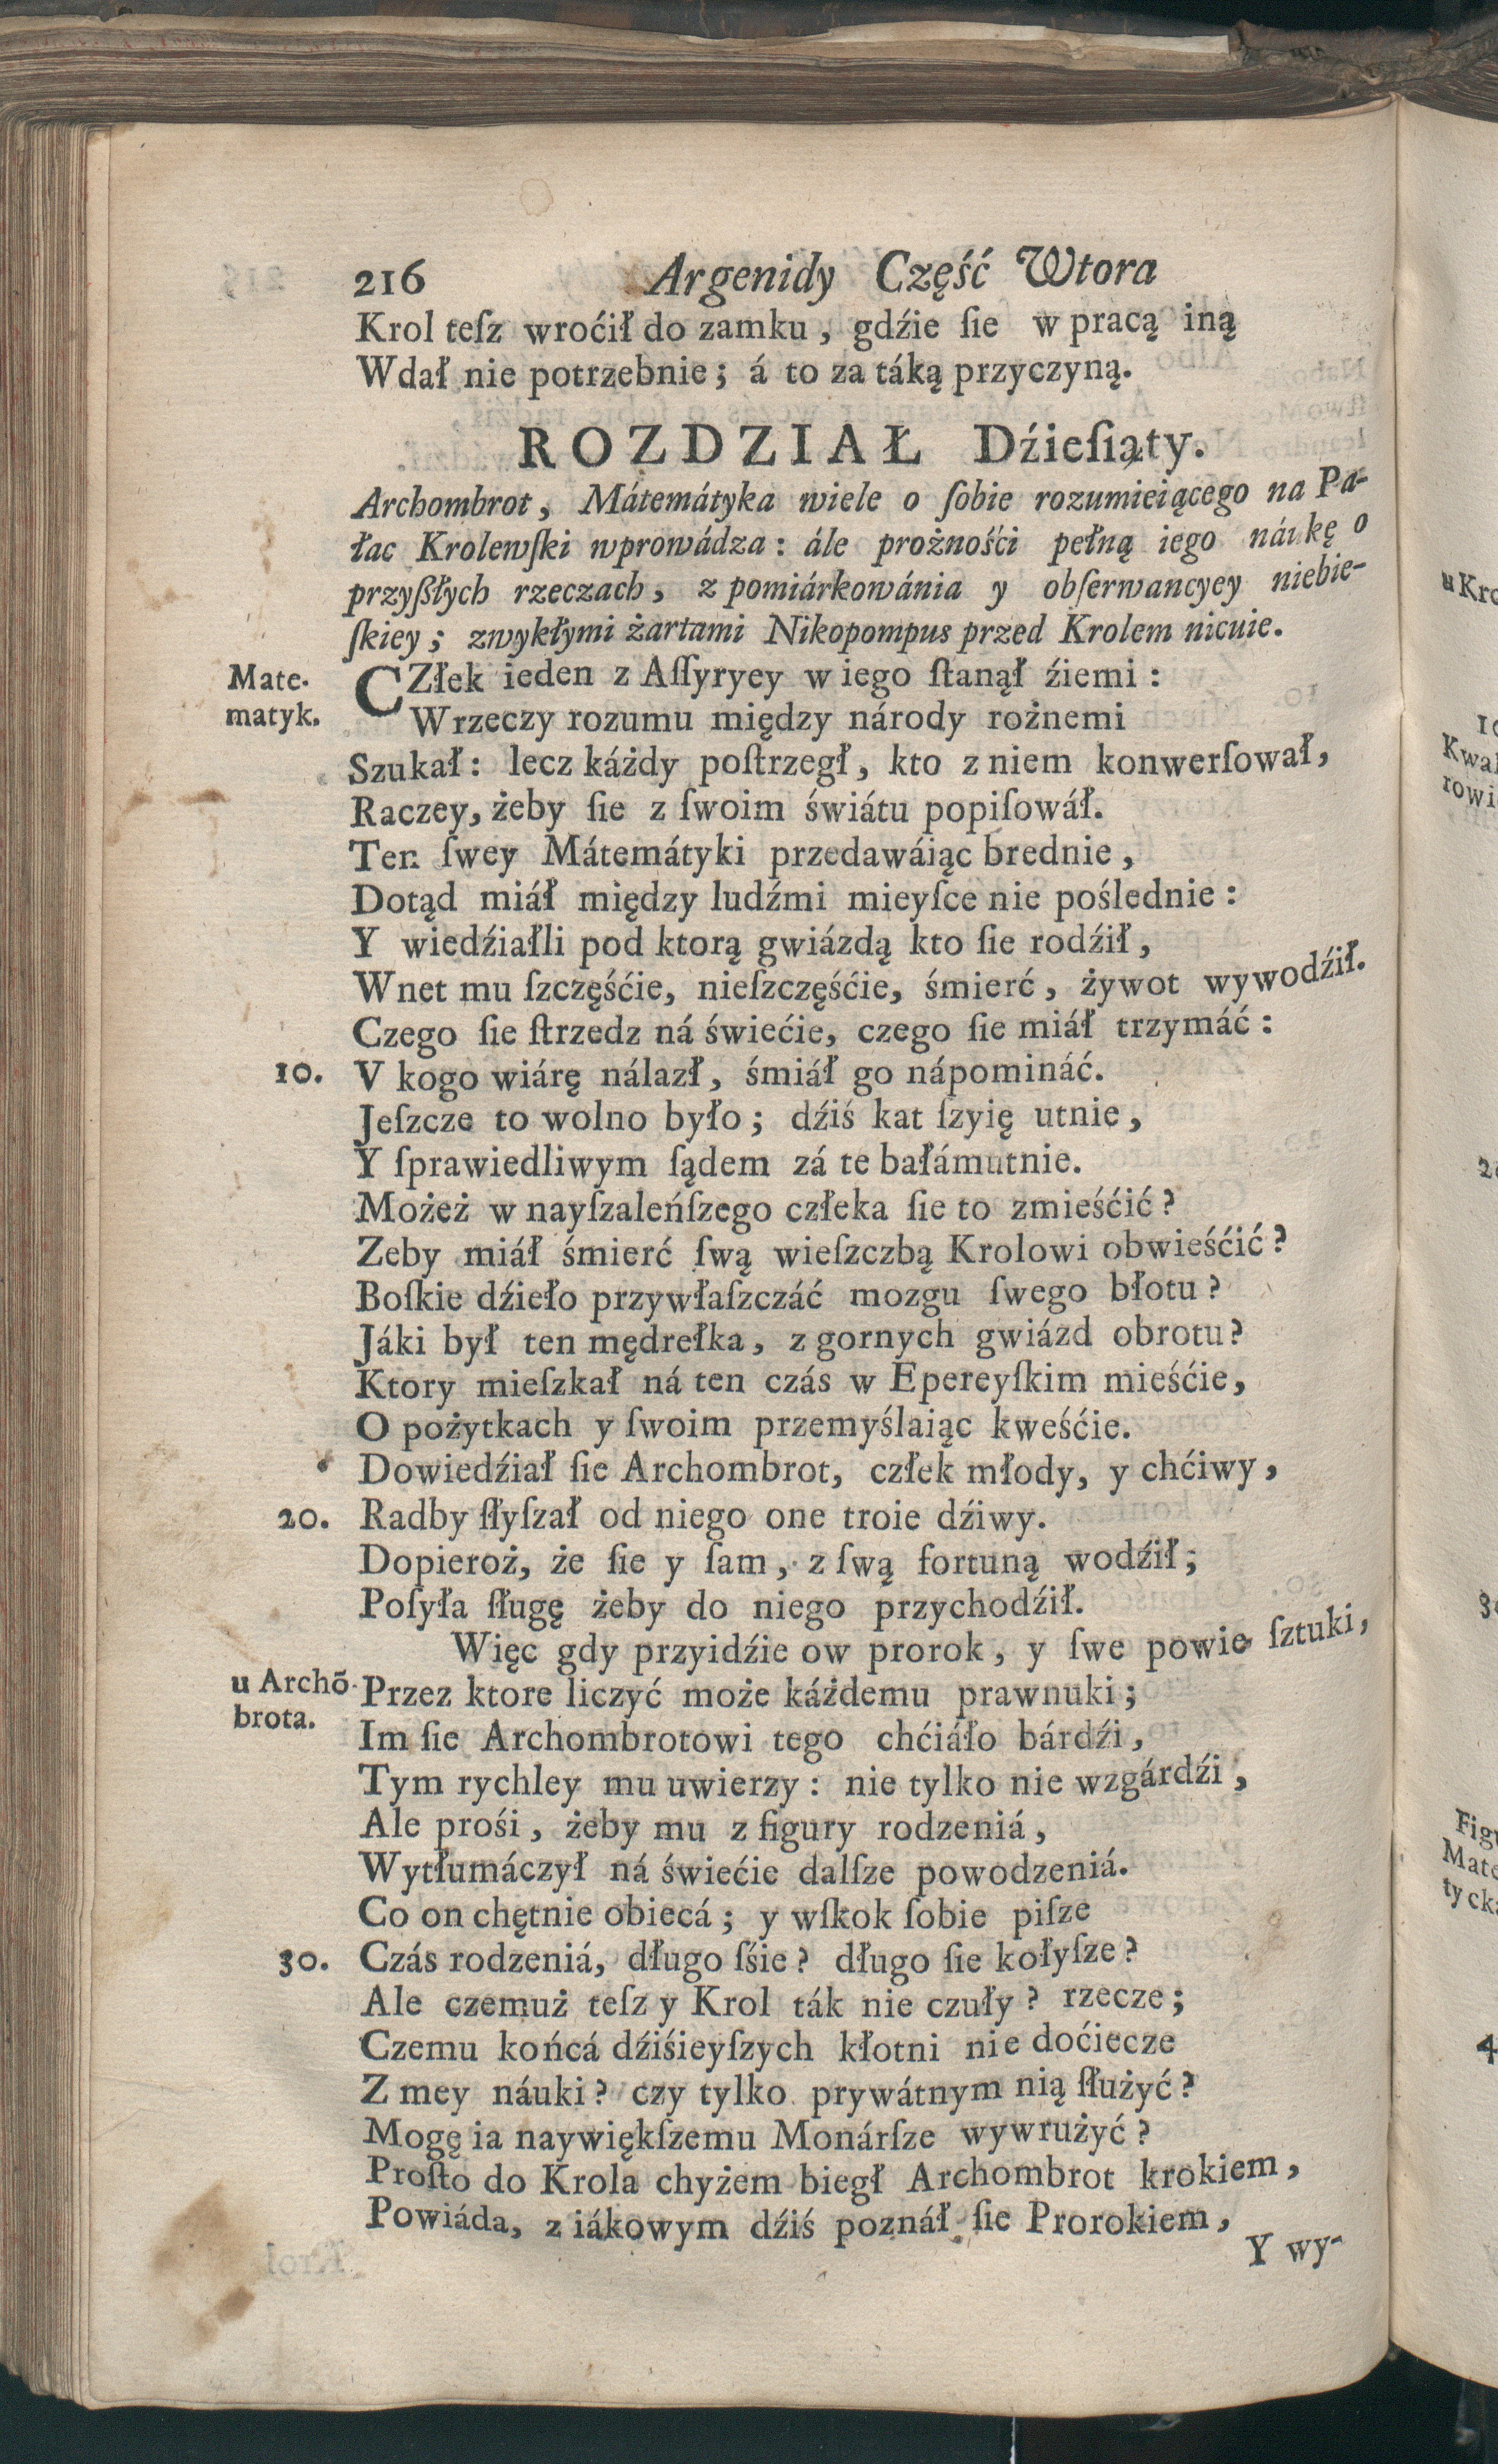 216 Argenidy Część Wtora
Krol teſz wroćił do zamku, gdźie ſie w pracą iną
Wdał nie potrzebnie; á to za táką przyczyną.
ROZDZIAŁ Dźieſiąty.
Archombrot, Mátemátyka wiele o ſobie rozumieiącego na Pa-
łac Krolewſki wprowádza: ále prożnośći pełną iego náukę o
przyſßłych rzeczach, z pomiárkowánia y obſerwancyey niebie-
ſkiey; zwykłymi żartami Nikopompus przed Krolem nicuie.
Mate-
matyk.
CZłek ieden z Aſſyryey w iego ſtanął źiemi:
Wrzeczy rozumu między národy rożnemi
Szukał: lecz káżdy poſtrzegł, kto z niem konwerſował,
Raczey, żeby ſie z ſwoim świátu popiſowáł.
Ten ſwey Mátemátyki przedawáiąc brednie,
Dotąd miáł między ludźmi mieyſce nie poślednie:
Y wiedźiałli pod ktorą gwiázdą kto ſie rodźił,
Wnet mu ſzczęśćie, nieſzczęśćie, śmierć, żywot wywodźił.
Czego ſie ſtrzedz ná świećie, czego ſie miáł trzymáć:
10. V kogo wiárę nálazł, śmiáł go nápomináć.
Jeſzcze to wolno było; dźiś kat ſzyię utnie,
Y ſprawiedliwym ſądem zá te bałámutnie.
Możeż w nayſzaleńſzego człeka ſie to zmieśćić?
Zeby miáł śmierć ſwą wieſzczbą Krolowi obwieśćić?
Boſkie dźieło przywłaſzczáć mozgu ſwego błotu?
Jáki był ten mędrełka, z gornych gwiázd obrotu?
Ktory mieſzkał ná ten czás w Epereyſkim mieśćie,
O pożytkach y ſwoim przemyślaiąc kweśćie.
Dowiedźiał ſie Archombrot, człek młody, y chćiwy,
20. Radby ſłyſzał od niego one troie dźiwy.
Dopieroż, że ſie y ſam, z ſwą fortuną wodźił;
Poſyła ſługę żeby do niego przychodźił.
Więc gdy przyidźie ow prorok, y ſwe powie ſztuki,
u Archō-
brota.
Przez ktore liczyć może káżdemu prawnuki;
Im ſie Archombrotowi tego chćiáło bárdźi,
Tym rychley mu uwierzy: nie tylko nie wzgárdźi,
Ale prośi, żeby mu z figury rodzeniá,
Wytłumáczył ná świećie dalſze powodzeniá.
Co on chętnie obiecá; y wſkok ſobie piſze
30. Czás rodzeniá, długo ſśie? długo ſie kołyſze?
Ale czemuż teſz y Krol ták nie czuły? rzecze;
Czemu końcá dźiśieyſzych kłotni nie doćiecze
Z mey náuki? czy tylko prywátnym nią ſłużyć?
Mogę ia naywiękſzemu Monárſze wywrużyć?
Proſto do Krola chyżem biegł Archombrot krokiem,
Powiáda, z iákowym dźiś poznáł ſie Prorokiem,
Y wy-
u Kro
10
Kwal
rowi
Figu
Mate
tycka
4